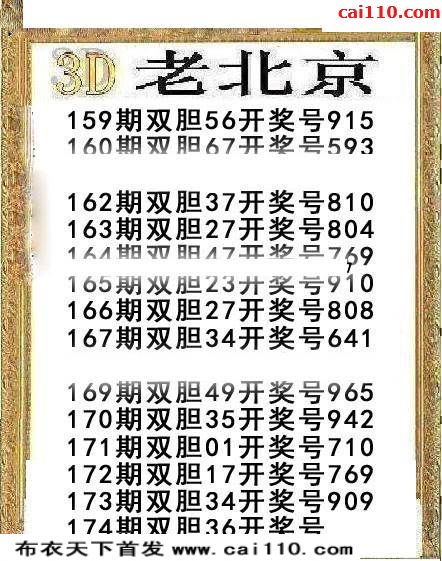 cai110.com
3D 老北京
159期双胆56开奖号915
160期双胆67开奖号593
162期双胆37开奖号810
163期双胆27开奖号804
164期双胆47开奖号769
165期双胆23开奖号910
166期双胆27开奖号808
167期双胆34开奖号641
169期双胆49开奖号965
170期双胆35开奖号942
171期双胆01开奖号710
172期双胆17开奖号769
173期双胆34开奖号909
174期双胆36开奖号
布衣天下首发 www.cai110.com